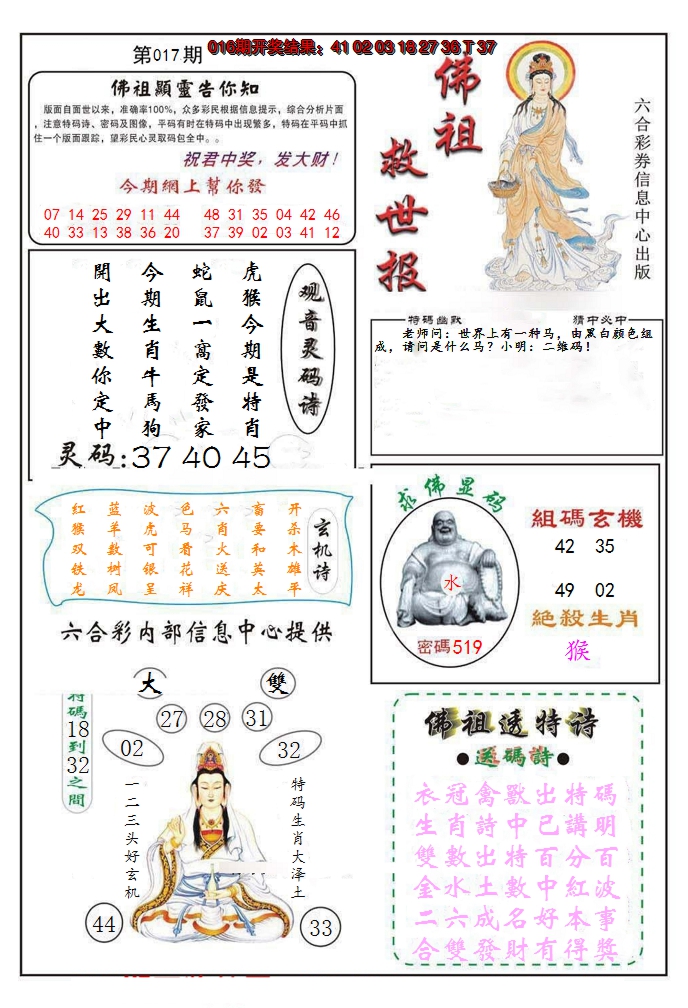 第017期
016期开奖结果：41 02 03 18 27 36 T 37
佛祖顯靈告你知
版面自面世以来，准确率100%，众多彩民根据信息提示，综合分析片面
，注意特码诗、密码及图像，平码有时在特码中出现繁多，特码在平码中抓
住一个版面跟踪，望彩民心灵取码包全中。。
祝君中奖，发大财！
今期網上幫你發
07 14 25 29 11 44 48 31 35 04 42 46
40 33 13 38 36 20 37 39 02 03 41 12
佛祖
救世报
六合彩券信息中心出版
观音灵码诗
虎猴今期是特肖
蛇鼠一窩定發家
今期生肖牛馬狗
開出大數你定中
灵码:37 40 45
特碼幽默
猜中必中
老师问：世界上有一种马，由黑白颜色组
成，请问是什么马？小明：二维码！
玄机诗
开杀木雄平
畜要和英太
六肖火送庆
色马看花祥
波虎可银呈
蓝羊数树凤
红猴双铁龙
六合彩内部信息中心提供
求佛显码
水
密碼519
組碼玄機
42 35
49 02
絶殺生肖
猴
大
雙
特碼18到32之間
27 28 31
02
32
一二三头好玄机
特码生肖大泽土
44
33
佛祖透特诗
●送碼詩●
衣冠禽獸出特碼
生肖詩中已講明
雙數出特百分百
金水土數中紅波
二六成名好本事
合雙發財有得獎